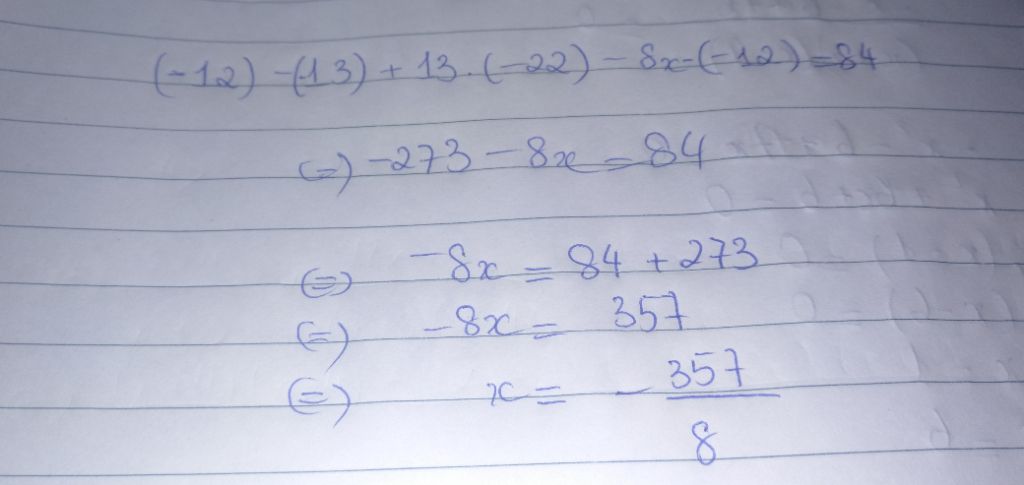 (-12) -(13) + 13 . (-22) - 8x-(-12) = 84
(=) -273 - 8x = 84
(=) -8x = 84 + 273
(=) -8x = 357
(=) x = - 357/8